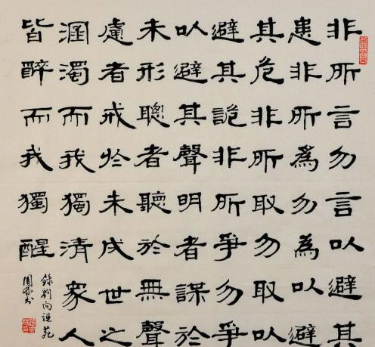 非所言勿言以避其
患非所為勿為以避
其危非所取勿取以
避其詭非所爭勿爭
以避其聲明者謀於
未形聰者聽於無聲
慮者戒於未成世之
溷濁而我獨清眾人
皆醉而我獨醒
錄劉向說苑